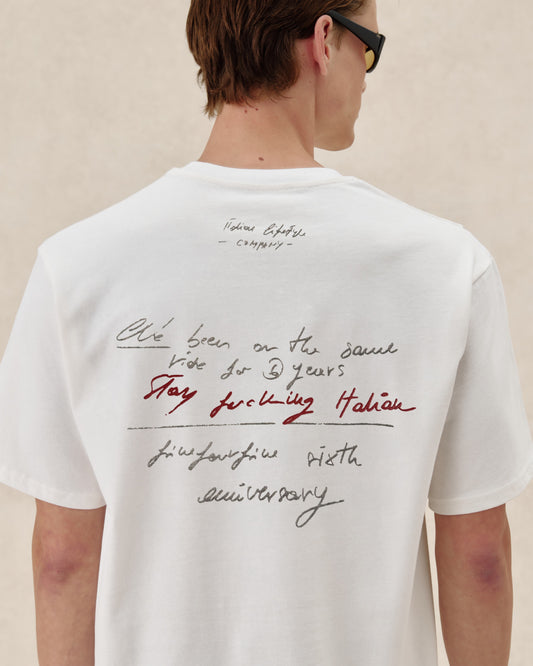 Italian lifestyle
- COMPANY -
been on the same
ride for 6 years
Stay fucking Italian
fivefourfive sixth
anniversary